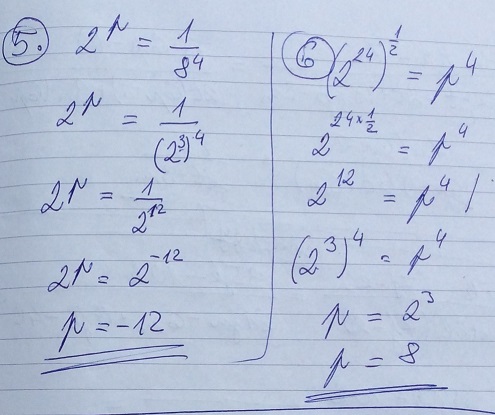 5. 2^p = 1/8^4
2^p = 1/(2^3)^4
2^p = 1/2^12
2^p = 2^-12
p = -12
6 (2^24)^1/2 = p^4
2^24×1/2 = p^4
2^12 = p^4 /
(2^3)^4 = p^4
p = 2^3
p = 8